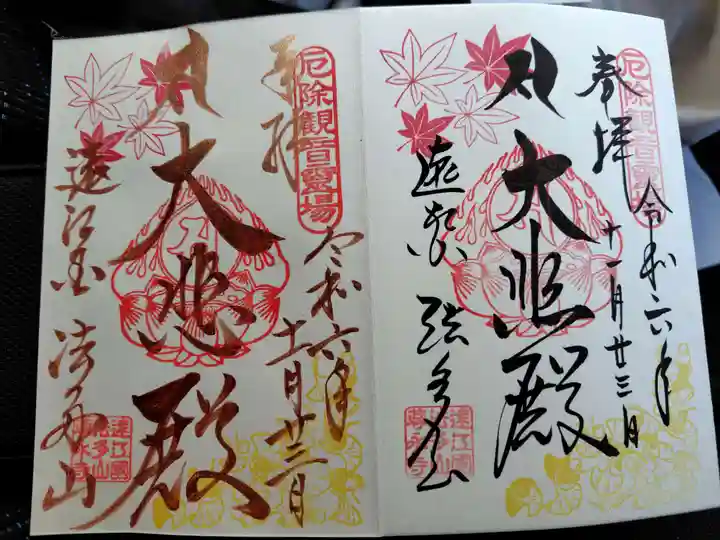 厄除観音霊場
奉拝
令和六年
十一月廿三日
大悲殿
遠江国
法多山
厄除観音霊場
奉拝
令和六年
十一月廿三日
大悲殿
遠江国 法多山
遠江國
法多山
尊永寺